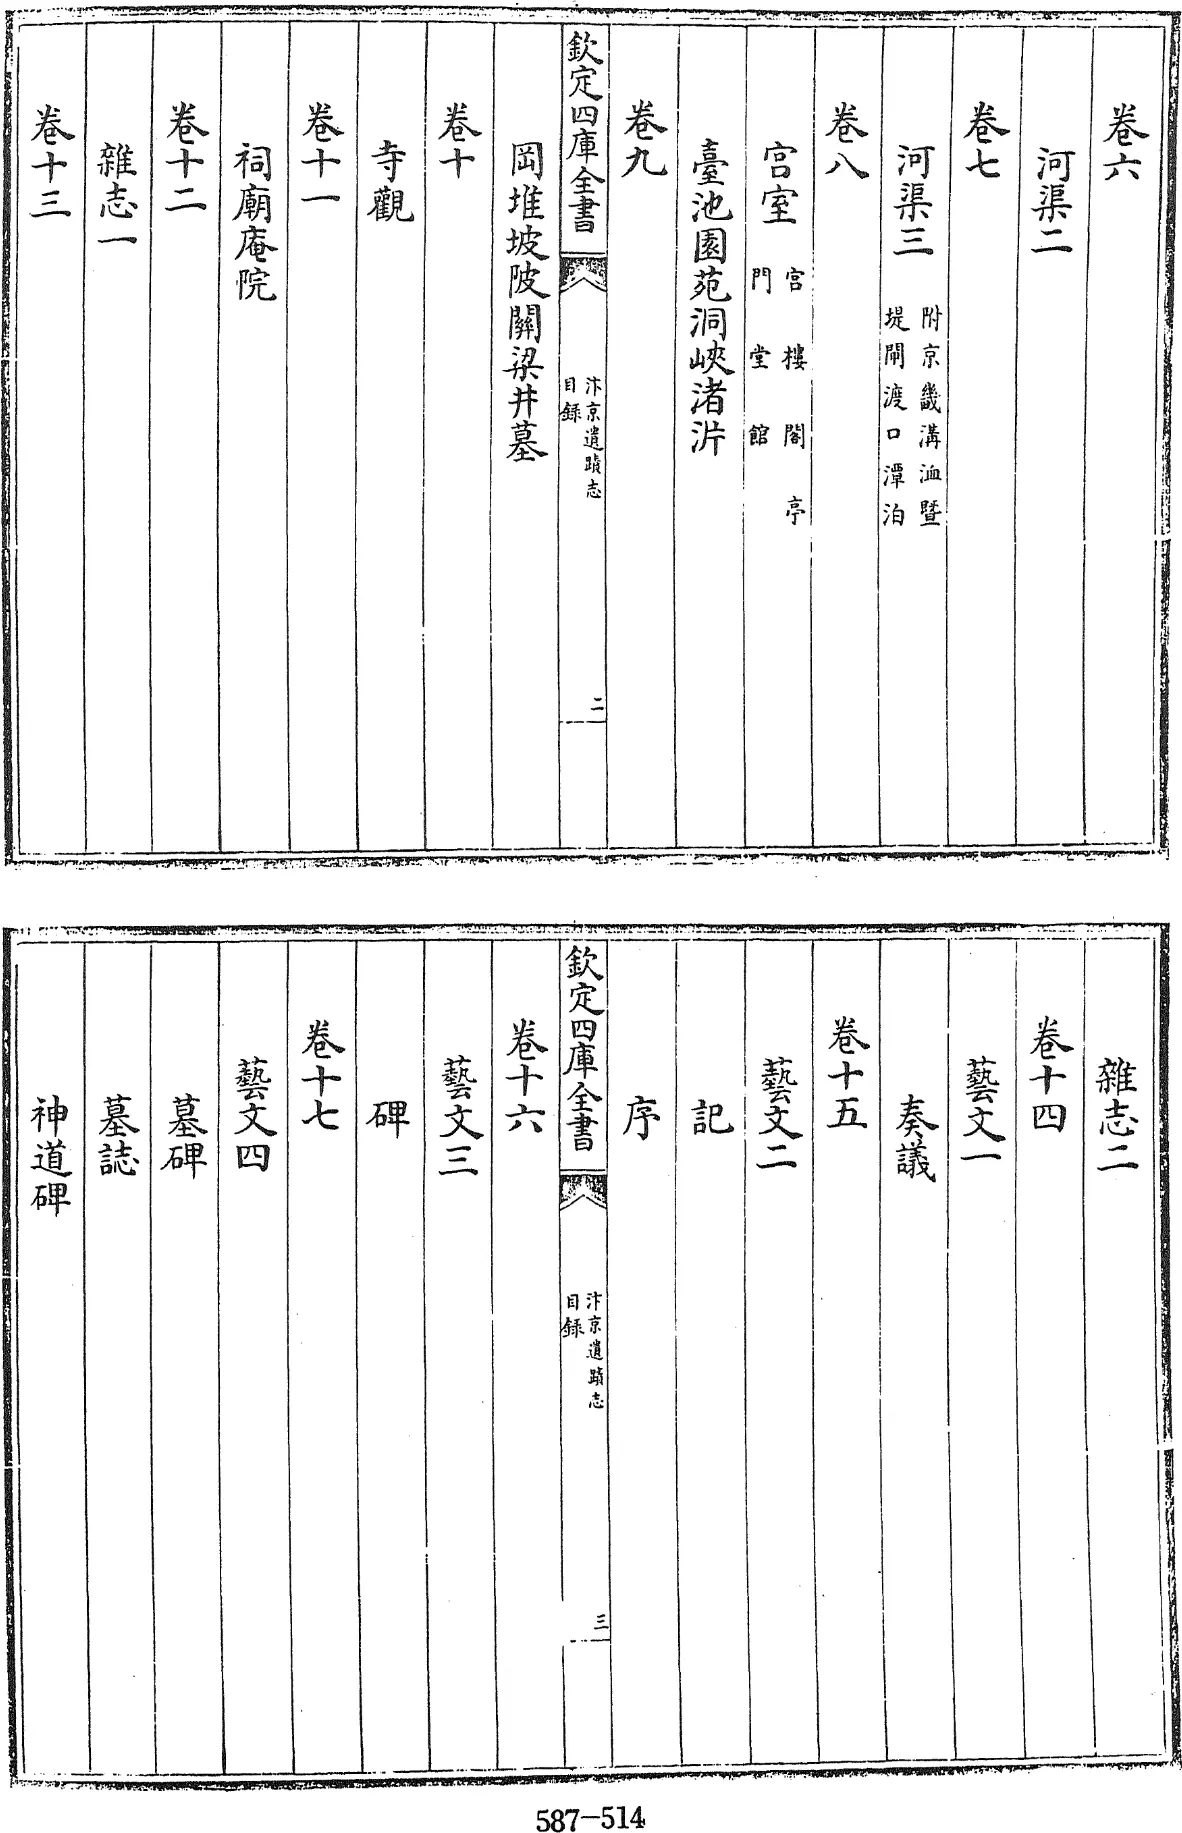 卷六
河渠二
卷七
河渠三
附京畿溝洫暨
堤閘渡口潭泊
卷八
宮室
宮樓閣亭
門堂館
臺池園苑洞峽渚泲
卷九
欽定四庫全書
汴京遺蹟志
目録
二
岡堆坡陂關梁井墓
卷十
寺觀
卷十一
祠廟庵院
卷十二
雜志一
卷十三
雜志二
卷十四
藝文一
奏議
卷十五
藝文二
記
序
欽定四庫全書
汴京遺蹟志
目録
三
卷十六
藝文三
碑
卷十七
藝文四
墓碑
墓誌
神道碑
587-514